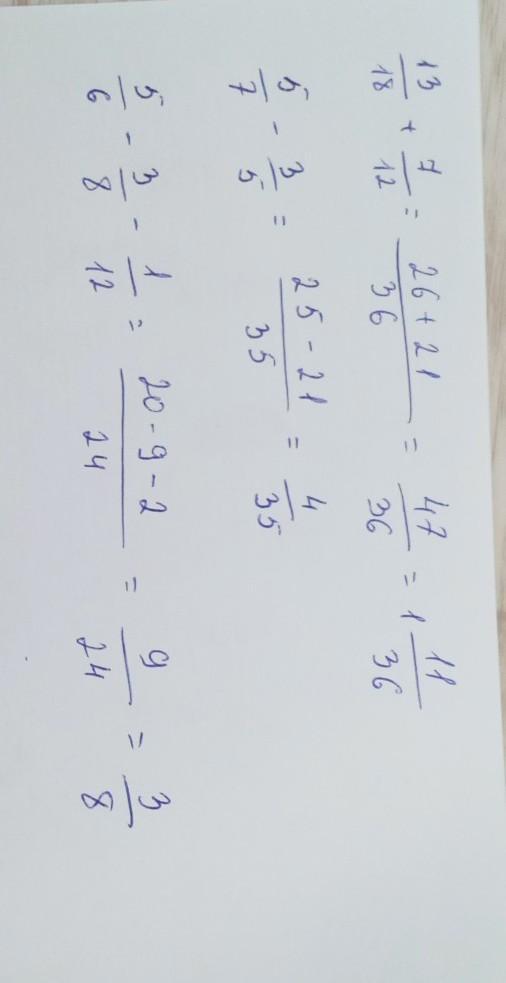 13/18 + 7/12 = (26 + 21)/36 = 47/36 = 1 11/36
5/7 - 3/5 = (25 - 21)/35 = 4/35
5/6 - 3/8 - 1/12 = (20 - 9 - 2)/24 = 9/24 = 3/8